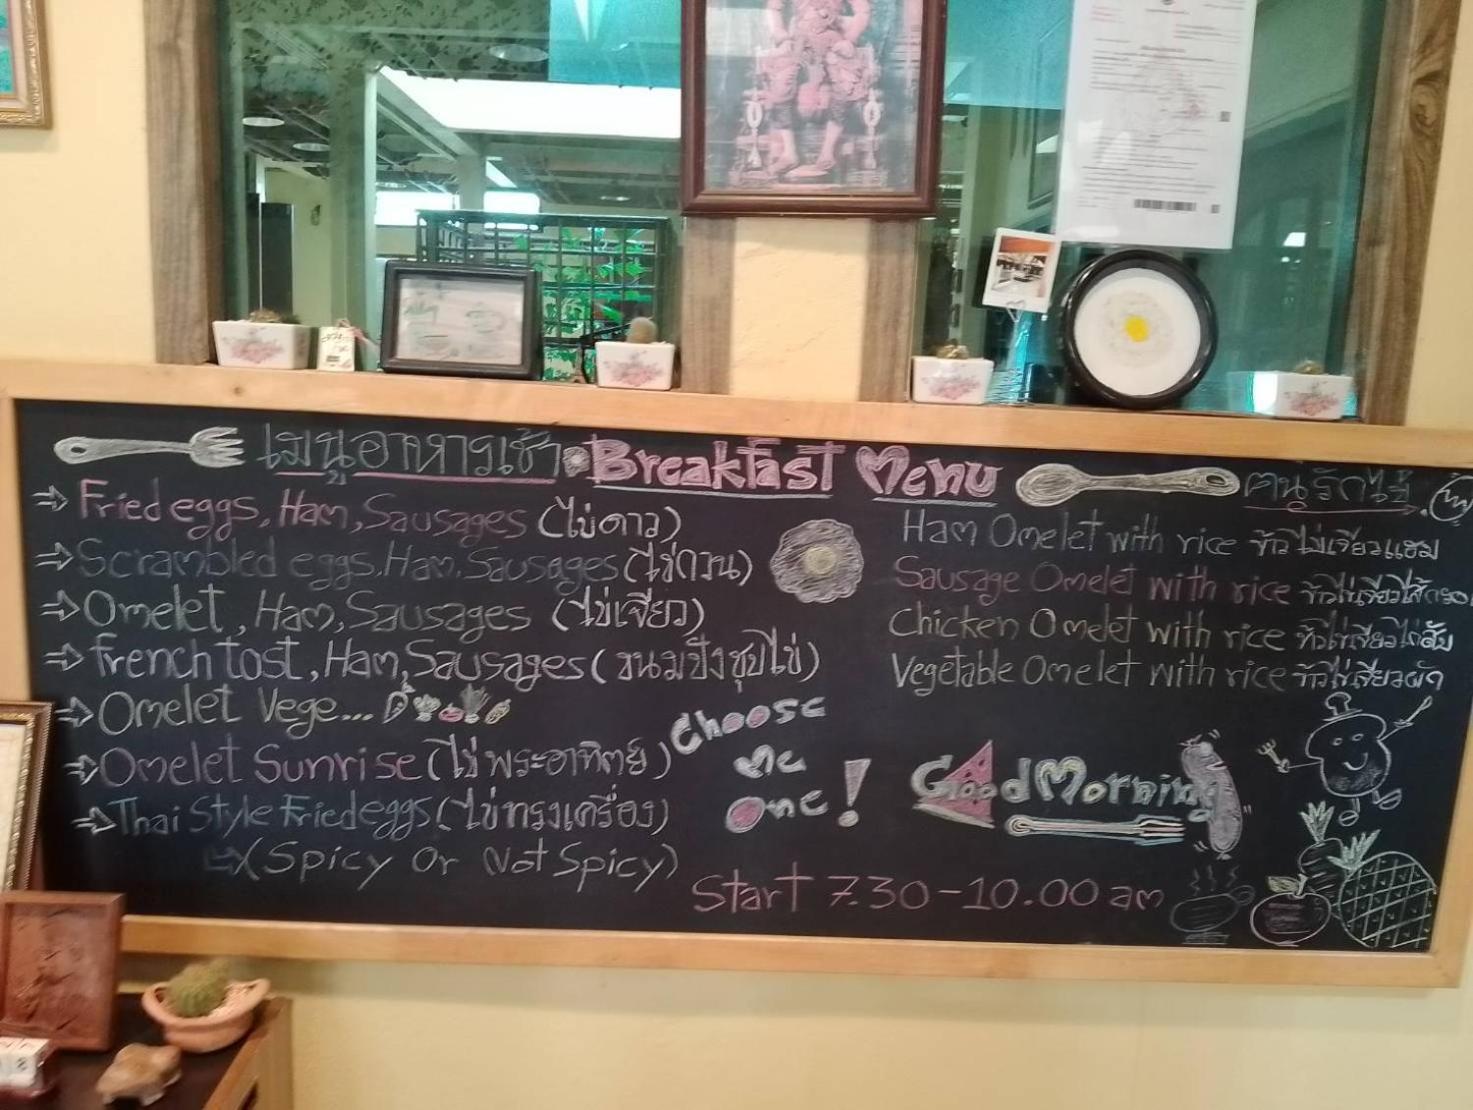 เมนูอาหารเช้า Breakfast Menu
คนรักไข่
Fried eggs, Ham, Sausages (ไข่ดาว)
Scrambled eggs, Ham, Sausages (ไข่กวน)
Omelet, Ham, Sausages (ไข่เจียว)
french tost, Ham, Sausages (ขนมปังชุปไข่)
Omelet Vege...
Omelet Sunrise (ไข่พระอาทิตย์)
Thai Style Fried eggs (ไข่ทรงเครื่อง)
(Spicy Or Not Spicy)
Choose
Me
One!
Ham Omelet with rice ข้าวไข่เจียวแฮม
Sausage Omelet with rice ข้าวไข่เจียวไส้กรอก
Chicken Omelet with rice ข้าวไข่เจียวไก่สับ
Vegetable Omelet with rice ข้าวไข่เจียวผัก
Good Morning
Start 7.30-10.00 am